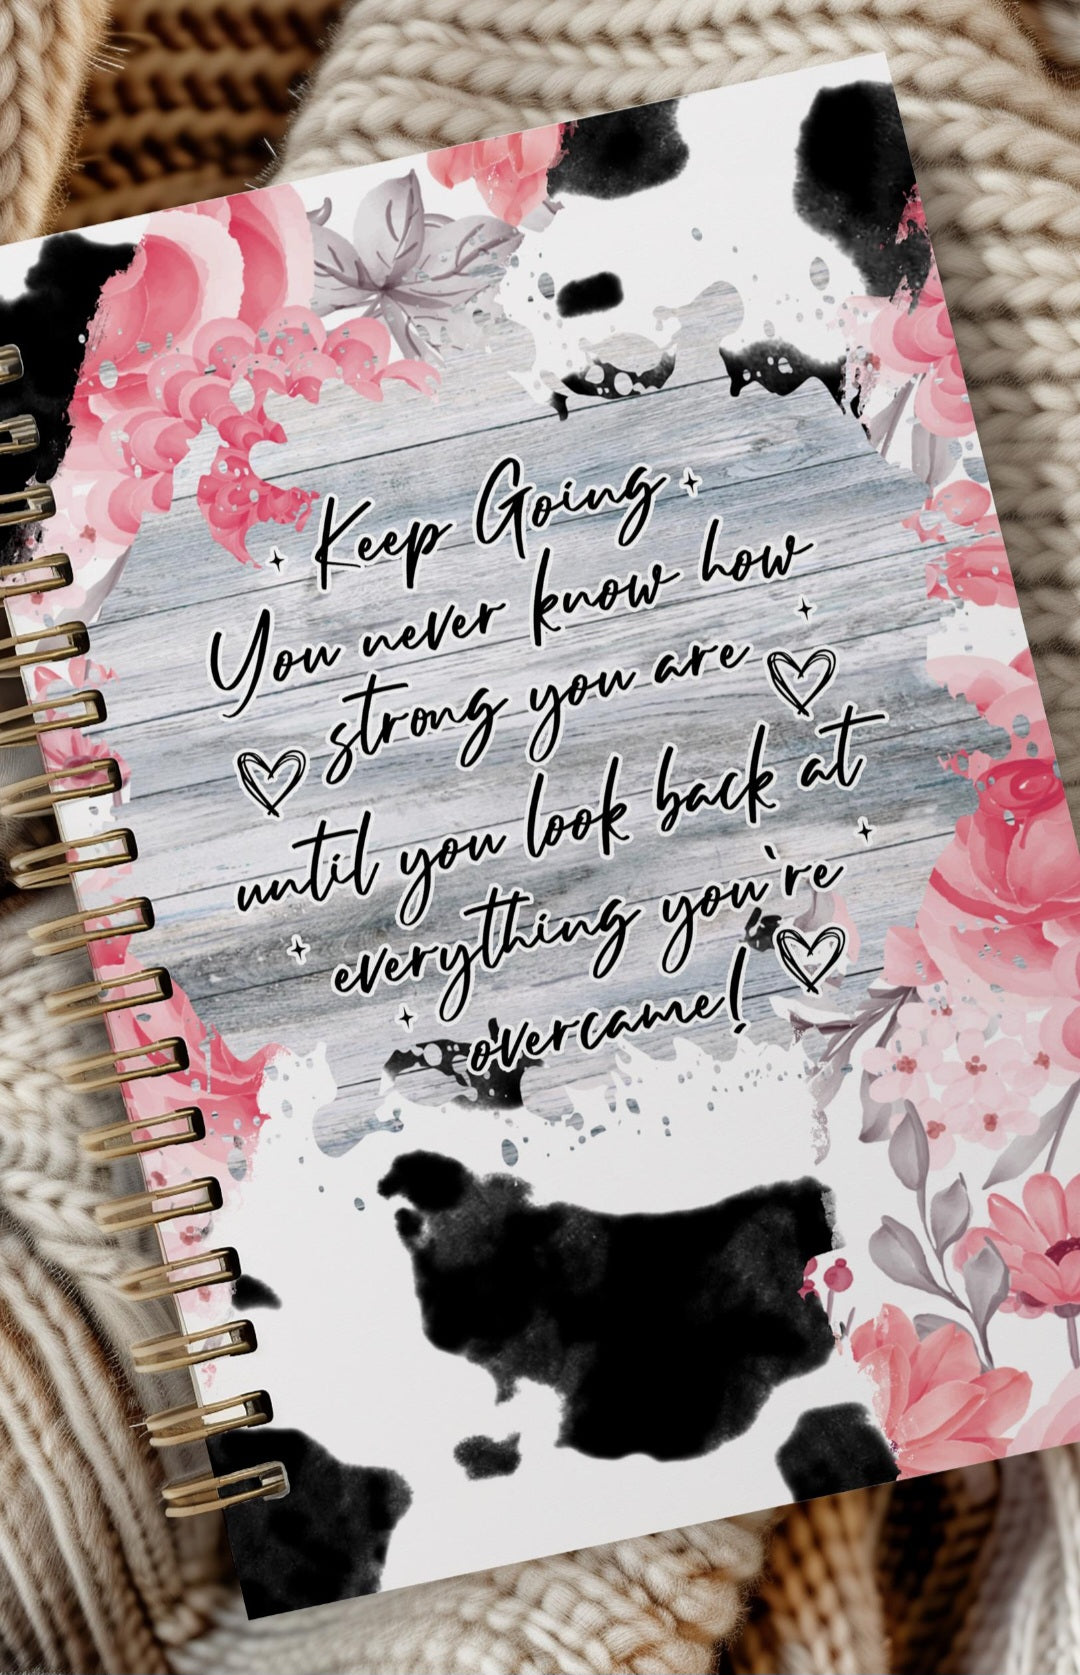 Keep Going
You never know how
strong you are
until you look back at
everything you're
overcame!